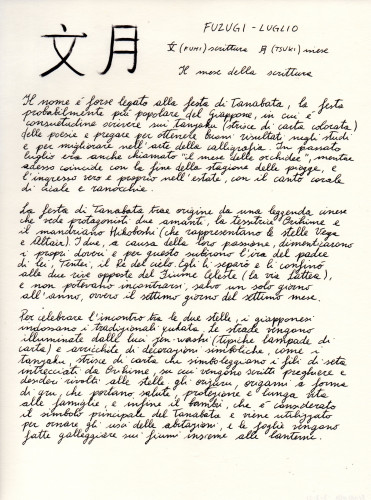 文月
FUZUGI - LUGLIO
文 (FUMI) scrittura 月 (TSUKI) mese
Il mese della scrittura
Il nome è forse legato alla festa di Tanabata, la festa
probabilmente più popolare del Giappone, in cui è
consuetudine scrivere sui tanzaku (strisce di carta colorata)
delle poesie e pregare per ottenere buoni risultati negli studi
e per migliorare nell'arte della calligrafia. In passato
luglio era anche chiamato "il mese delle orchidee", mentre
adesso coincide con la fine della stagione delle piogge, e
l'ingresso vero e proprio nell'estate, con il canto corale
di cicale e ranocchie.
La festa di Tanabata trae origine da una leggenda cinese
che vede protagonisti due amanti, la tessitrice Orihime e
il mandriano Hikoboshi (che rappresentano le stelle Vega
e Altair). I due, a causa della loro passione, dimenticarono
i propri doveri e per questo subirono l'ira del padre
di lei, Tentei, il Re del cielo. Egli li separò e li confinò
alle due rive opposte del Fiume Celeste (la via Lattea),
e non potevano incontrarsi, salvo un solo giorno
all'anno, ovvero il settimo giorno del settimo mese.
Per celebrare l'incontro tra le due stelle, i giapponesi
indossano i tradizionali yukata, le strade vengono
illuminate dalle luci zen-washi (tipiche lampade di
carta) e arricchite di decorazioni simboliche, come i
tanzaku, strisce di carta che simboleggiano i fili di seta
intrecciati da Orihime, su cui vengono scritti preghiere e
desideri rivolti alle stelle, gli orizuru, origami a forma
di gru, che portano salute, protezione e lunga vita
alle famiglie, e infine il bambù, che è considerato
il simbolo principale del Tanabata e viene utilizzato
per ornare gli usci delle abitazioni, e le foglie vengono
fatte galleggiare sui fiumi insieme alle lanterne.